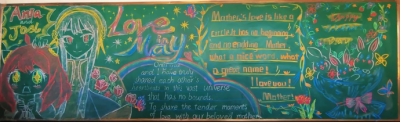 Anya
and
José
Love
in
May
Mother's love is like a
circle it has no beginning
and no ending. Mother
what a nice word what
a great name!
I love you!
Mother!
and I have truly
shared each other's
in this vast universe
that has no bounds.
To share the tender moments
of love with our beloved mothers